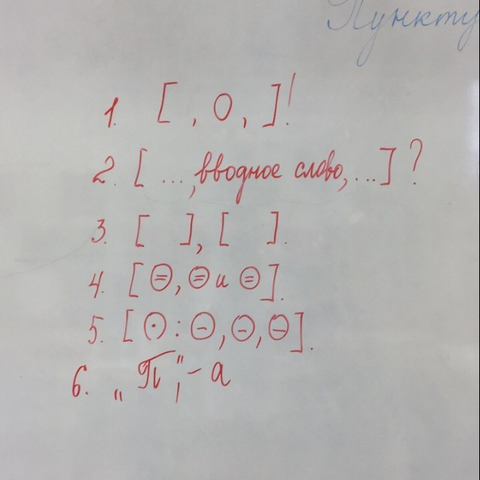 Пункту
1. [ , О, ]!
2. [ ..., вводное слово, ...] ?
3. [ ], [ ].
4. [⊜, ⊜ и ⊜].
5. [⊙ : ⊖, ⊖, ⊖].
6. „П", – а